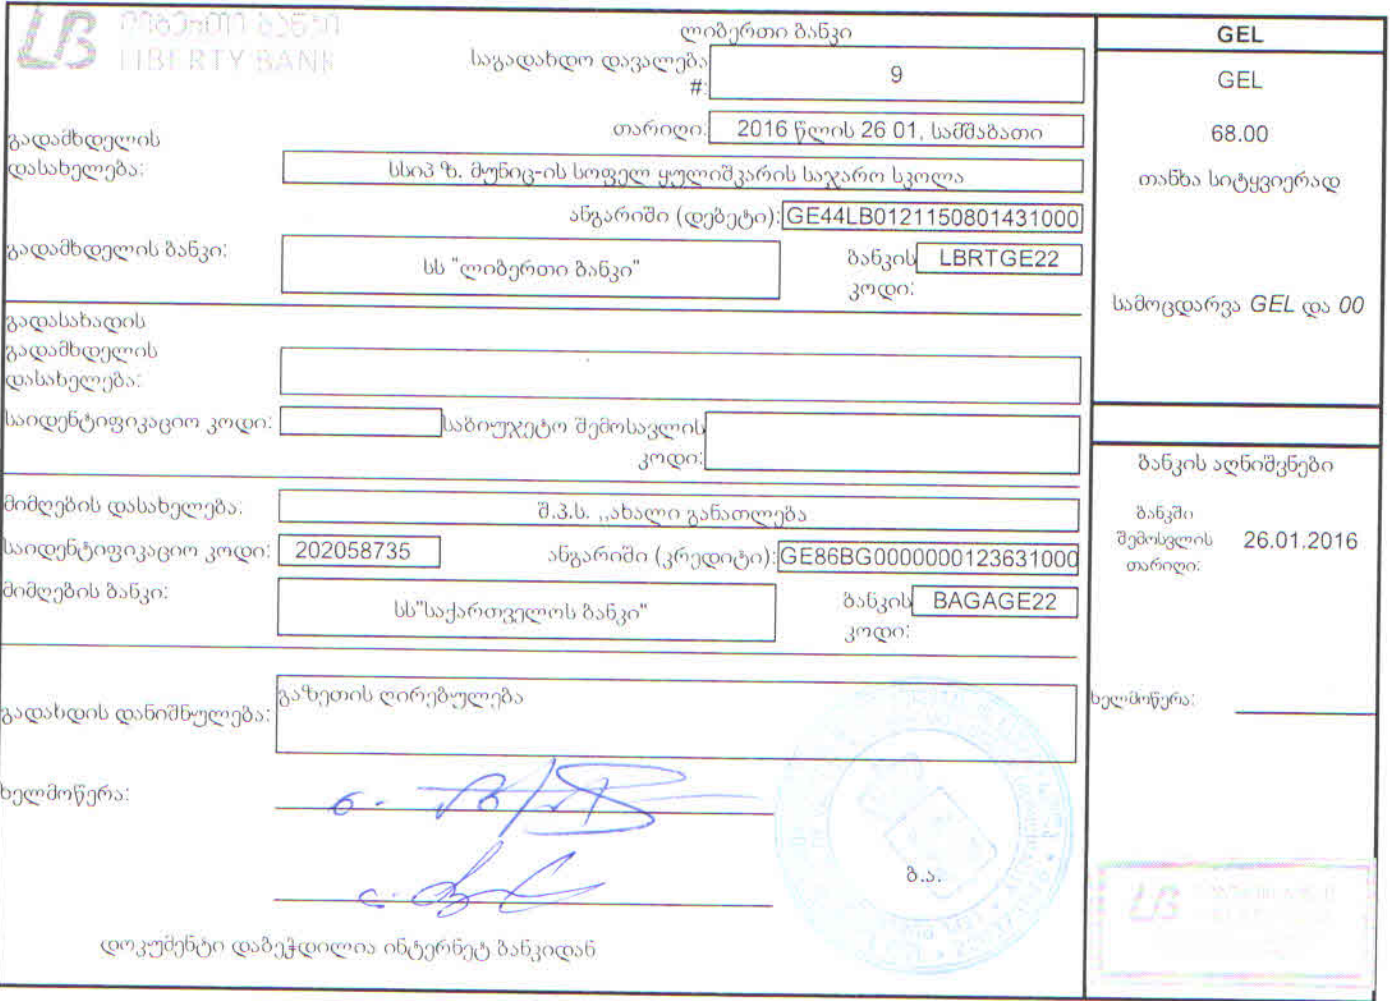 ლიბერთი ბანკი
LIBERTY BANK
ლიბერთი ბანკი
საგადახდო დავალება #: 9
თარიღი: 2016 წლის 26 01, სამშაბათი
გადამხდელის დასახელება: სსიპ ზ. მუნიც-ის სოფელ ყულიშკარის საჯარო სკოლა
ანგარიში (დებეტი): GE44LB0121150801431000
გადამხდელის ბანკი: სს "ლიბერთი ბანკი"
ბანკის კოდი: LBRTGE22
გადასახადის
გადამხდელის
დასახელება:
საიდენტიფიკაციო კოდი:
საბიუჯეტო შემოსავლის კოდი:
მიმღების დასახელება: შ.პ.ს. ,,ახალი განათლება
საიდენტიფიკაციო კოდი: 202058735
ანგარიში (კრედიტი): GE86BG0000000123631000
მიმღების ბანკი: სს"საქართველოს ბანკი"
ბანკის კოდი: BAGAGE22
გადახდის დანიშნულება: გაზეთის ღირებულება
ხელმოწერა:
ბ.ა.
დოკუმენტი დაბეჭდილია ინტერნეტ ბანკიდან
GEL
GEL
68.00
თანხა სიტყვიერად
სამოცდარვა GEL და 00
ბანკის აღნიშვნები
ბანკში შემოსვლის თარიღი: 26.01.2016
ხელმოწერა:
LB